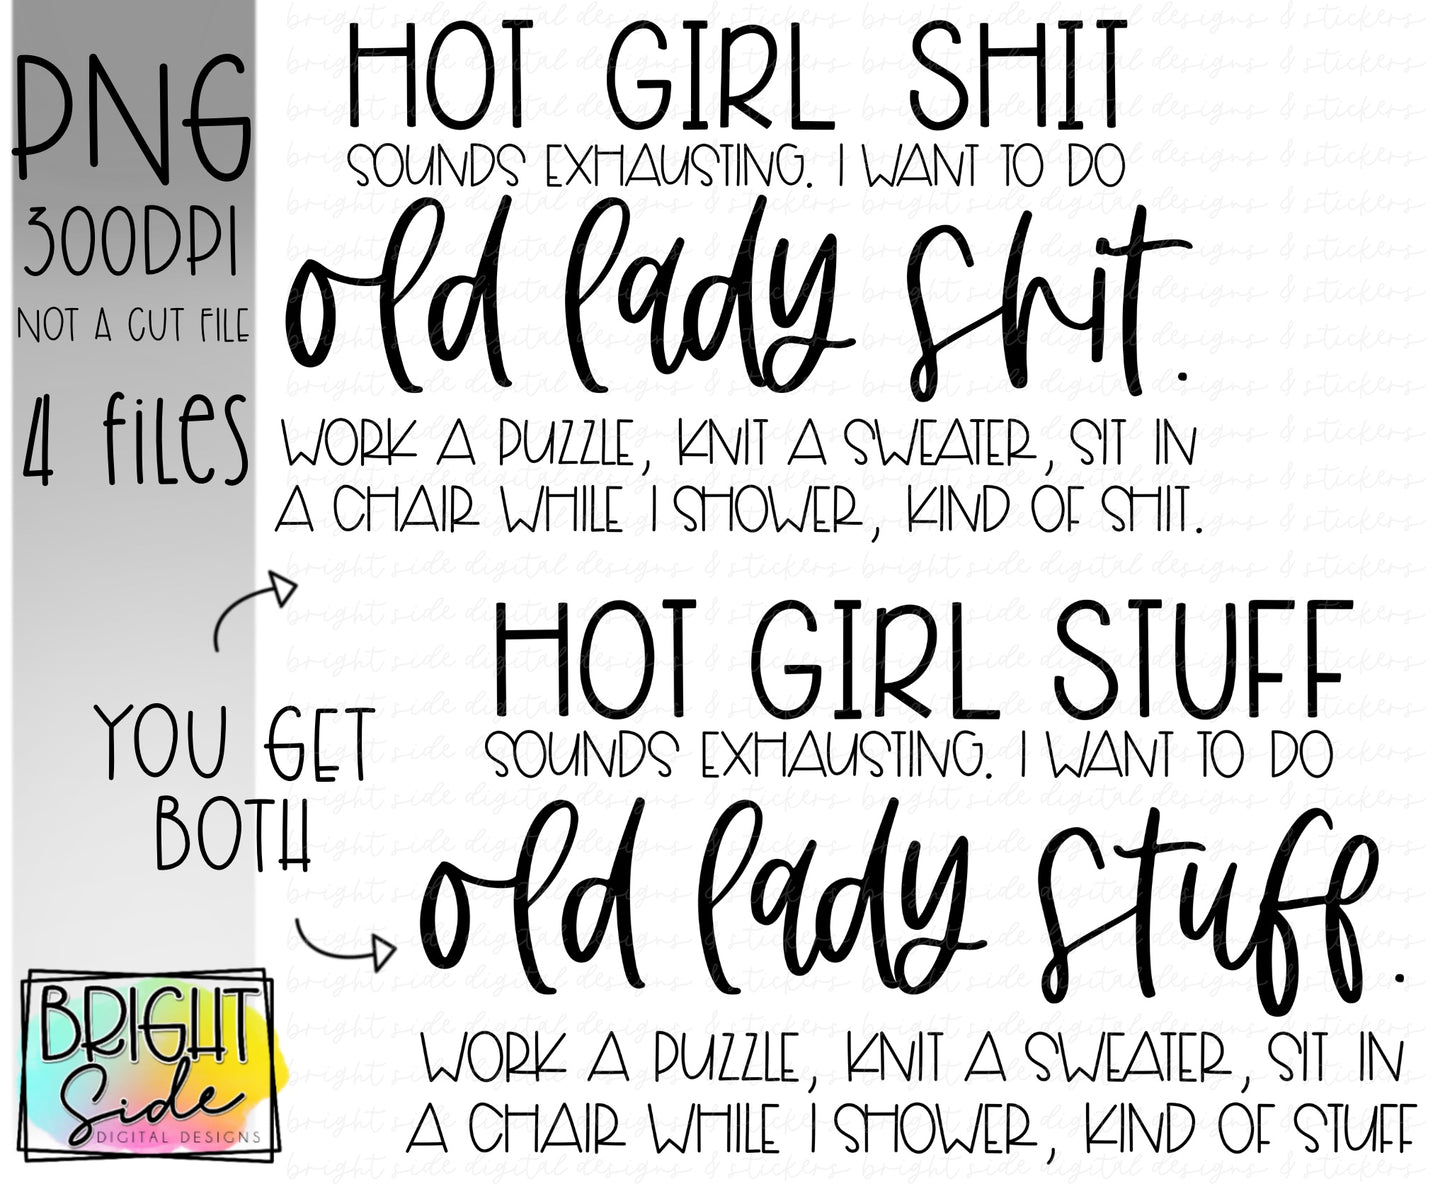 PNG
300DPI
NOT A CUT FILE
4 files
HOT GIRL SHIT
SOUNDS EXHAUSTING. I WANT TO DO
old lady shit.
WORK A PUZZLE, KNIT A SWEATER, SIT IN
A CHAIR WHILE I SHOWER, KIND OF SHIT.
YOU GET
BOTH
HOT GIRL STUFF
SOUNDS EXHAUSTING. I WANT TO DO
old lady stuff.
WORK A PUZZLE, KNIT A SWEATER, SIT IN
A CHAIR WHILE I SHOWER, KIND OF STUFF
BRIGHT
Side
DIGITAL DESIGNS
bright side digital designs & stickers